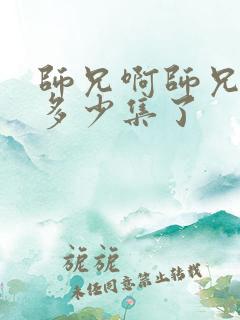 師兄啊師兄
多少集了
旎旎
未经同意禁止转载